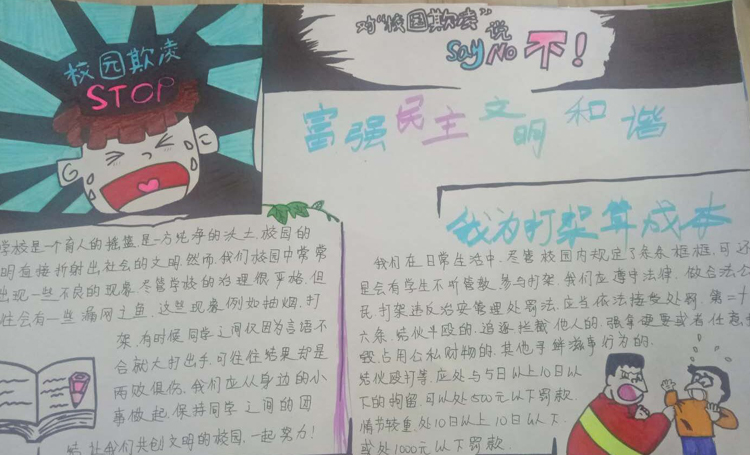 校园欺凌
STOP
对"校园欺凌"说
Say No 不!
富强民主文明和谐
学校是一个育人的摇篮是一方纯净的沃土,校园的
明直接折射出社会的文明然而,我们校园中常常
出现一些不良的现象.尽管学校的治理很严格,但
往会有一些漏网之鱼.这些现象例如抽烟,打
架,有时候同学之间仅因为言语不
合就大打出手,可往往结果却是
两败俱伤,我们应从身边的小
事做起,保持同学之间的团
结,让我们共创文明的校园,一起努力!
我为打架算成本
我们在日常生活中,尽管校园内规定了条条框框,可还
是会有学生不听管教,参与打架.我们应遵守法律,做合法公
民,打架违反治安管理处罚法,应当依法接受处罚,第二十
六条,结伙斗殴的,追逐拦截他人的,强拿硬要或者任意损
毁占用公私财物的,其他寻衅滋事行为的.
结伙殴打等,应处与5日以上10日以
下的拘留,可以处500元以下罚款.
情节较重,处10日以上10日以下.
或处1000元以下罚款